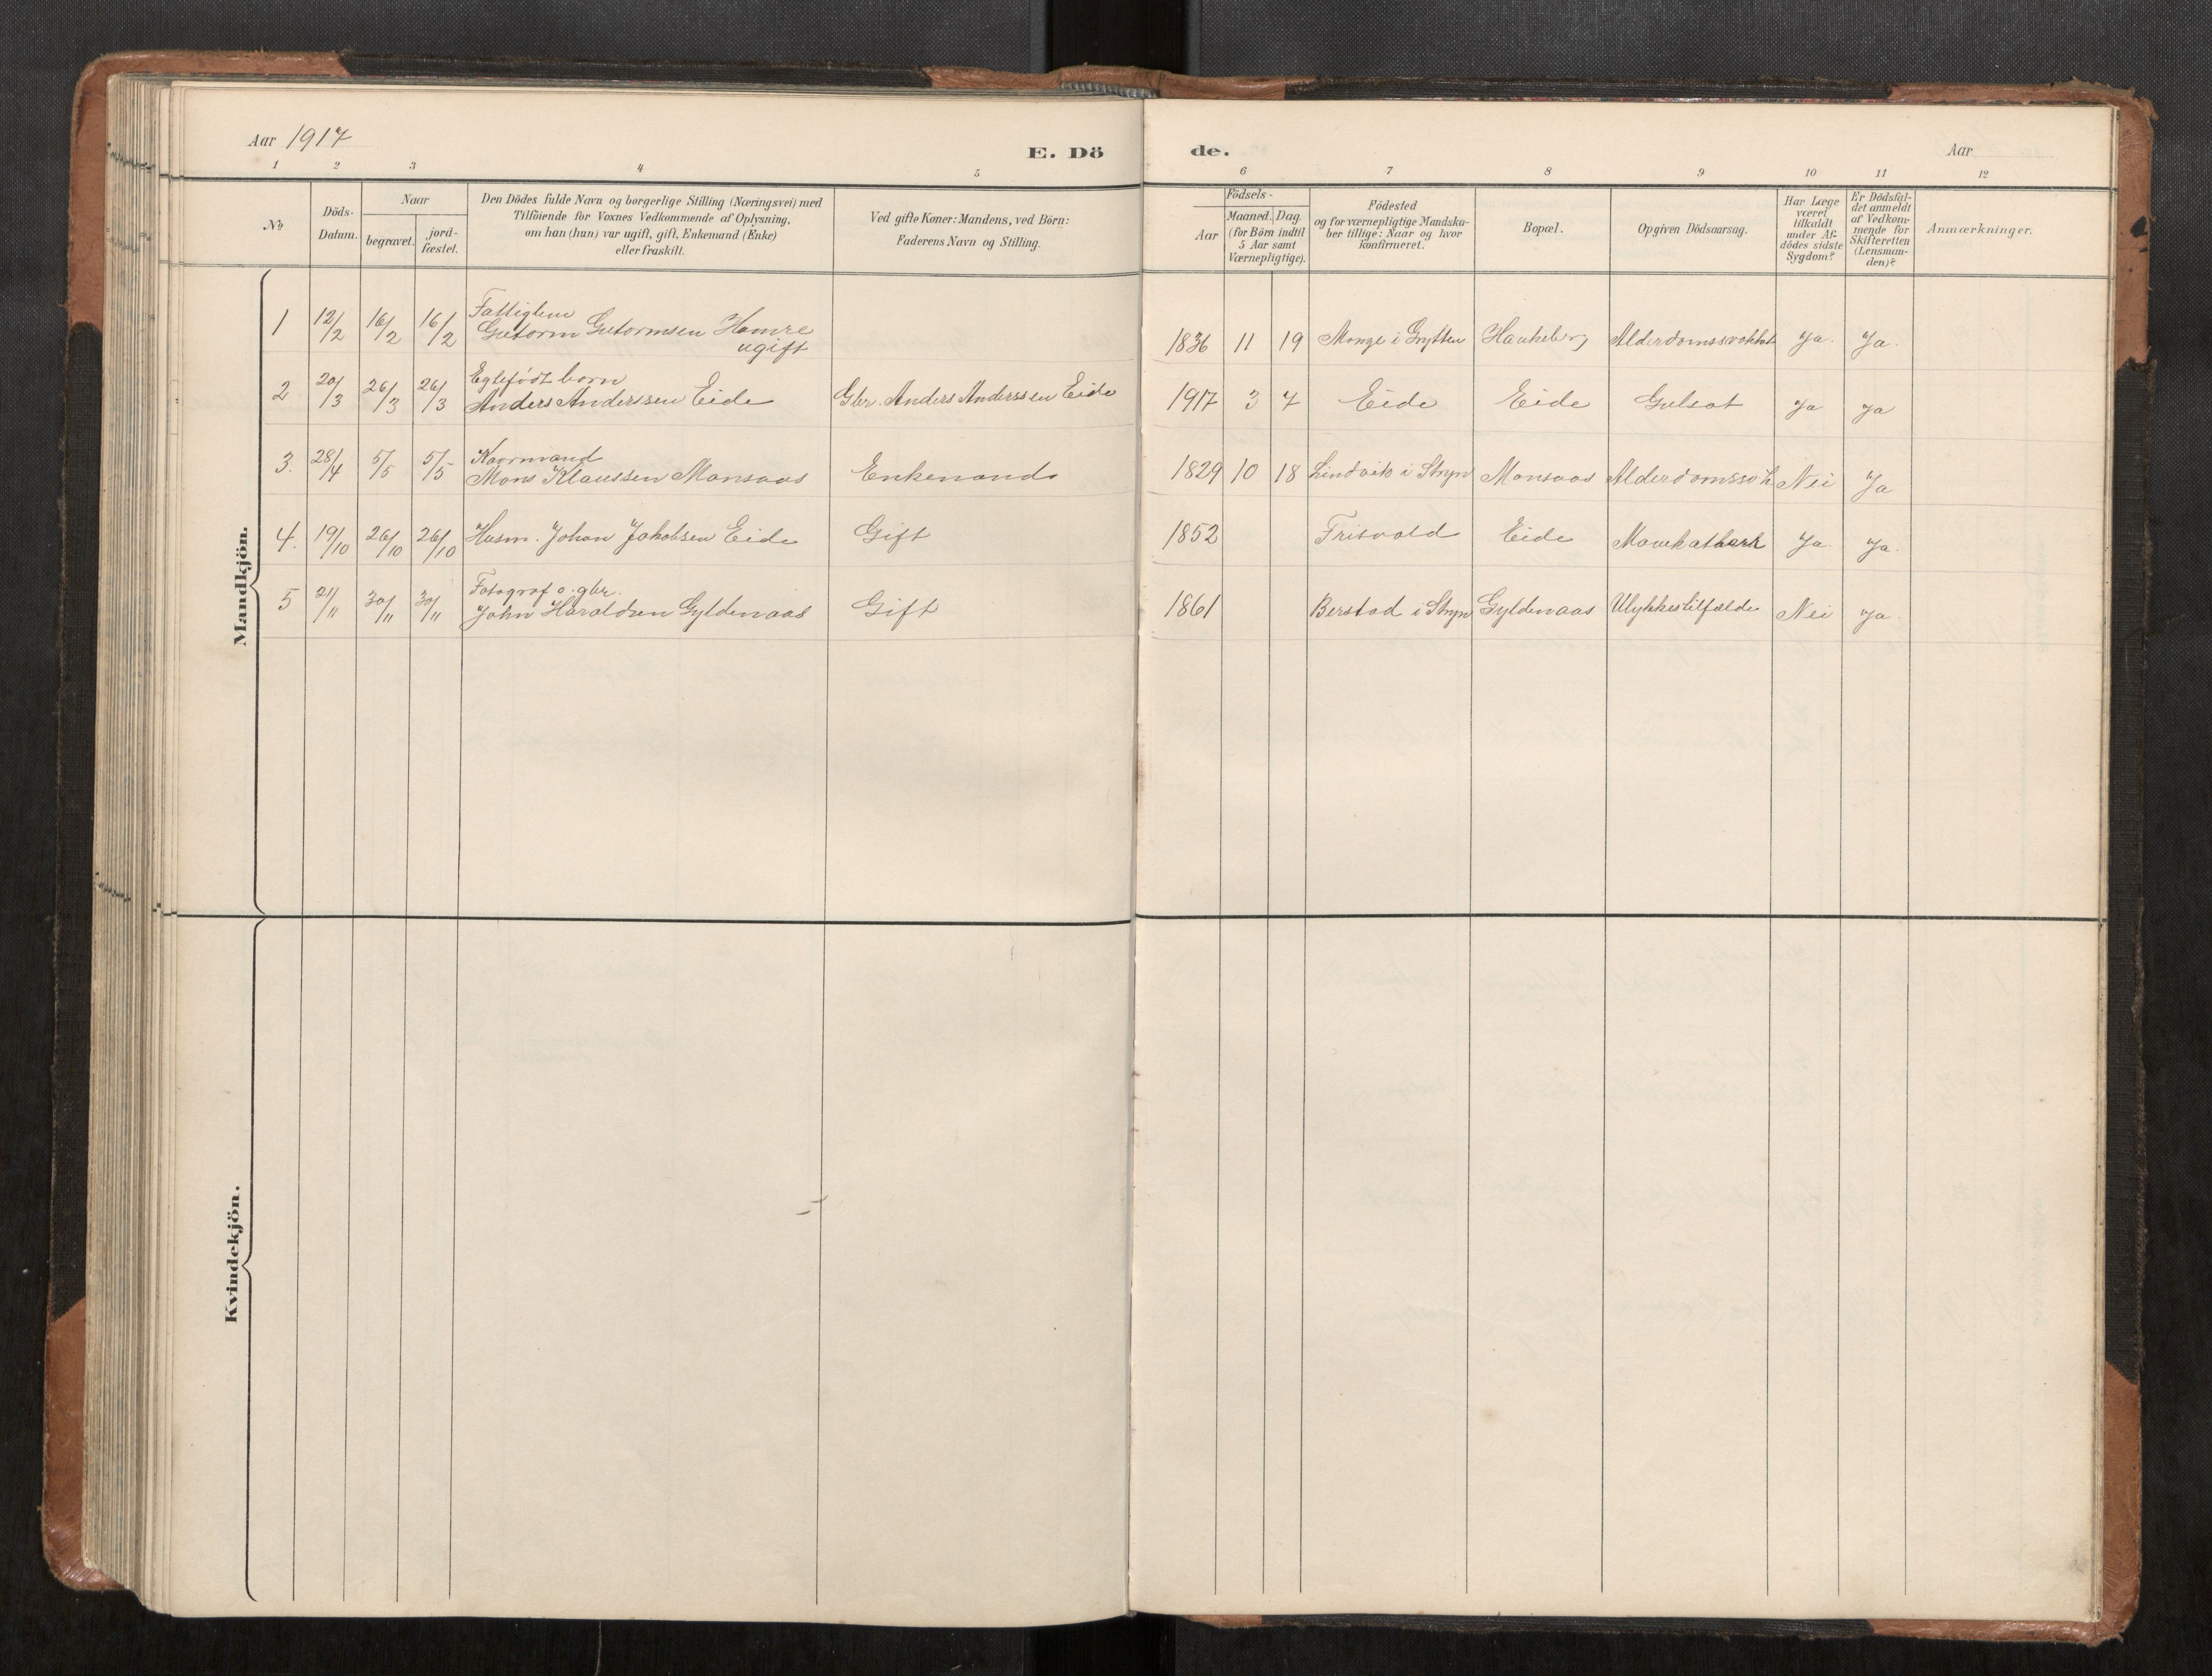 Aar 1917
E. Dö
de.
Aar
1 2 3 4 5 6 7 8 9 10 11 12
No.
Döds-
Datum.
Naar
begravet.
jord-
fæstet.
Den Dödes fulde Navn og borgerlige Stilling (Næringsvei) med
Tilföiende for Voxnes Vedkommende af Oplysning,
om han (hun) var ugift, gift, Enkemand (Enke)
eller fraskilt.
Ved gifte Koner: Mandens, ved Börn:
Faderens Navn og Stilling.
Födsels-
Aar
Maaned. Dag.
(for Börn indtil
5 Aar samt
Værnepligtige).
Födested
og for værnepligtige Mandska-
ber tillige: Naar og hvor
konfirmeret.
Bopæl.
Opgiven Dödsaarsag.
Har Læge
været
tilkaldt
under Af-
dödes sidste
Sygdom?
Er Dödsfal-
det anmeldt
af Vedkom-
mende for
Skifteretten
(Lensman-
den)?
Anmærkninger.
Mandkjön.
Fattiglem
1 12/2 16/2 16/2 Gutorm Gutormsen Hamre 1836 11 19 Monge i Grytten Ja. Ja.
ugift
Egtefödt barn
2 20/3 26/3 26/3 Anders Anderssen Eide Gbr. Anders Anderssen Eide 1917 3 7 Eide Eide Gulsot Ja Ja
Kaarmand
3. 28/4 5/5 5/5 Mons Klaussen Monsaas Enkemand 1829 10 18 Lindvik i Stryn Monsaas Nei Ja
4. 19/10 26/10 26/10 Husm. Johan Jakobsen Eide Gift 1852 Frisvold Eide Ja. Ja.
Fotograf o. gbr.
5 21/11 30/11 30/11 John Haraldsen Gyldenaas Gift 1861 Berstad i Stryn Gyldenaas Ulykkestilfælde Nei Ja.
Kvindekjön.